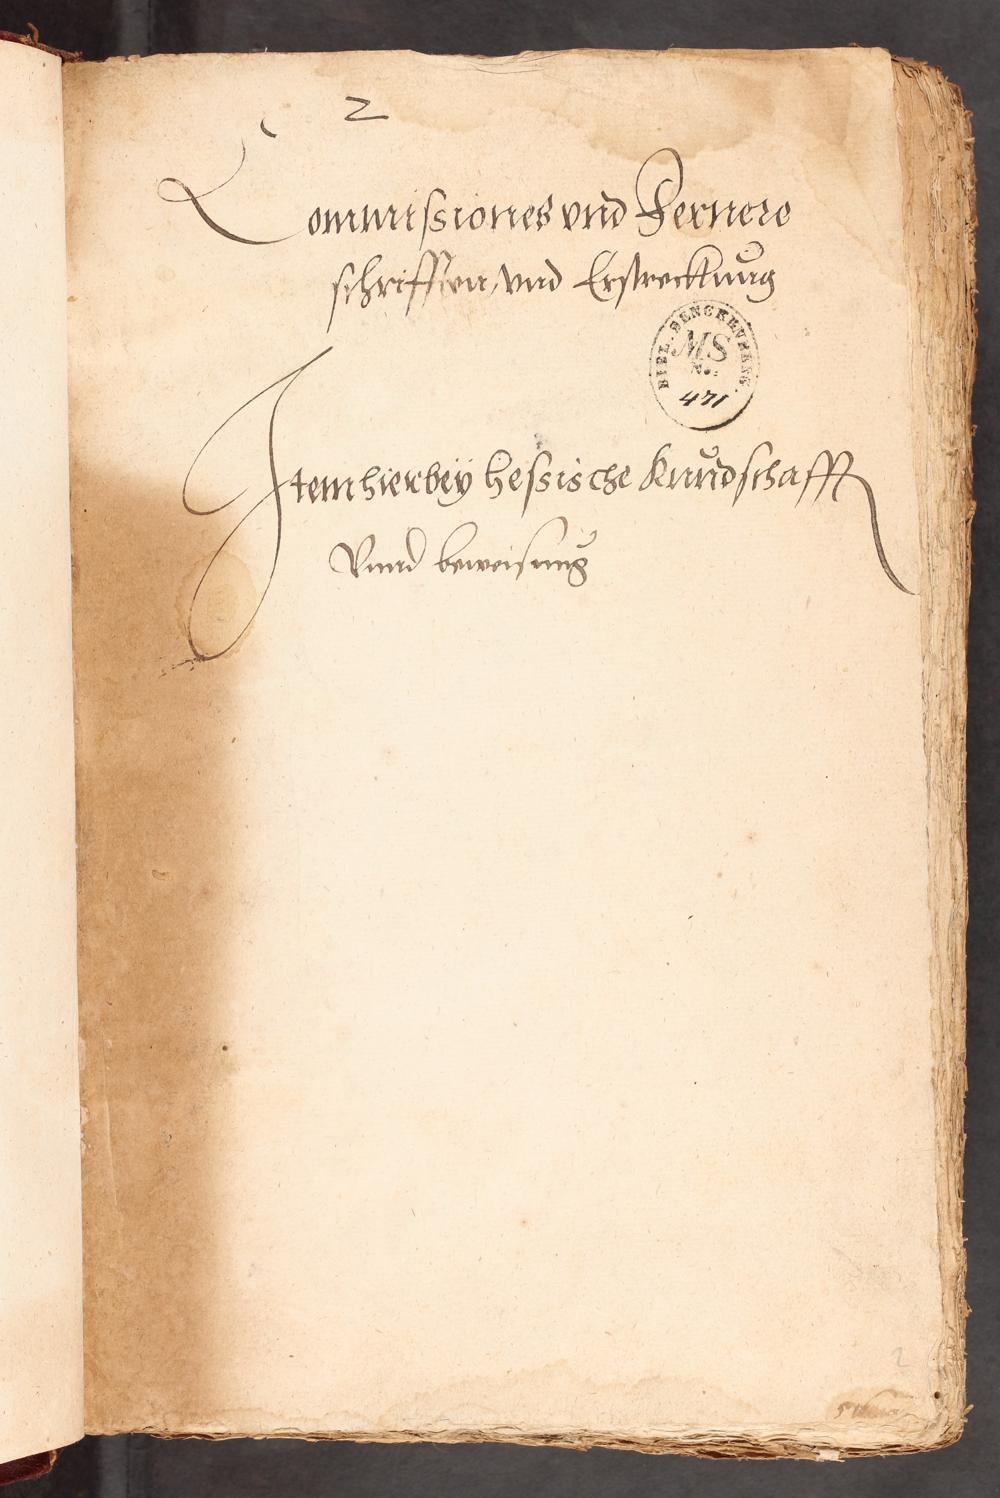 2
Commissiones vnd Fernere
schrifften, vnd Erstreckung
BIBL. SENCKENBERG.
MS
No:
471
Item hierbey hessische Kundschafft
Vnnd beweisung
2